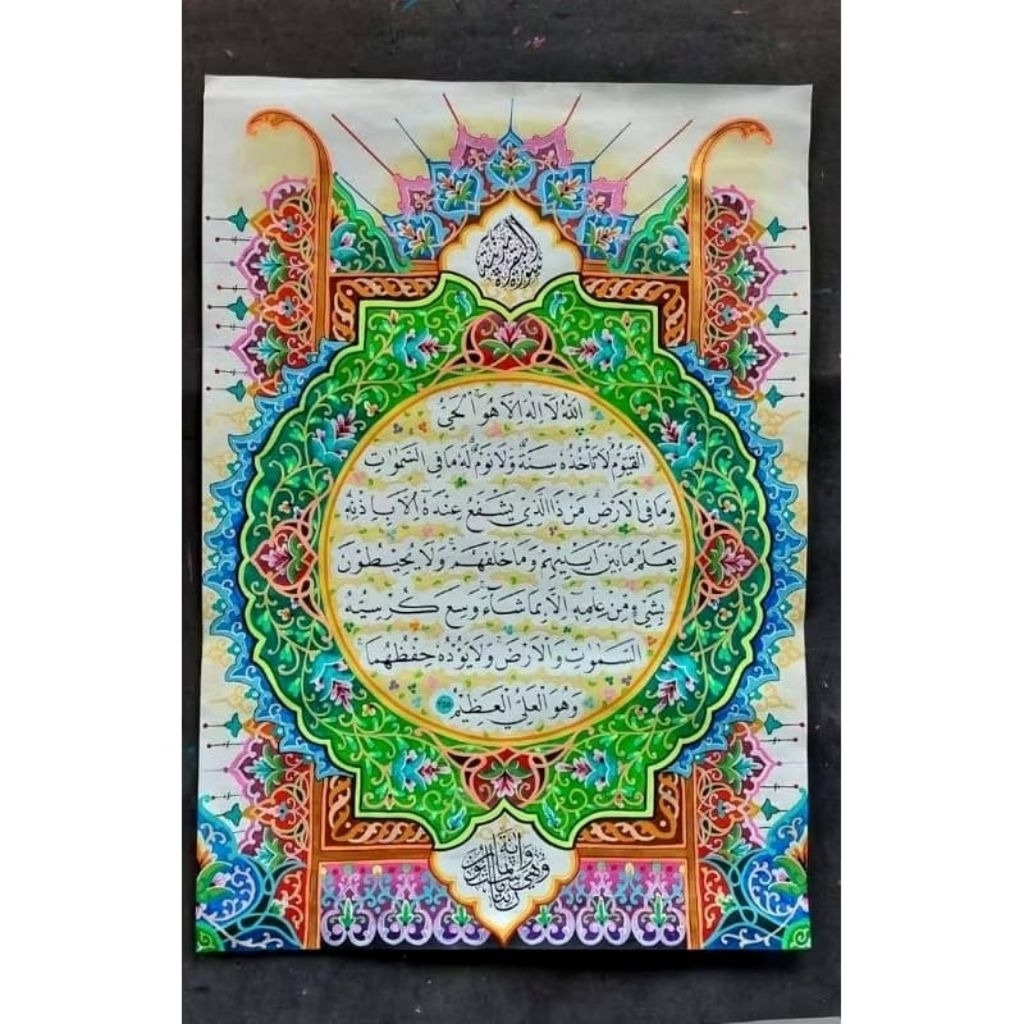 سورة البقرة مدنية
اَللّٰهُ لَا اِلٰهَ اِلَّا هُوَ الْحَيُّ
الْقَيُّوْمُ لَا تَأْخُذُهٗ سِنَةٌ وَّلَا نَوْمٌ لَهٗ مَا فِى السَّمٰوٰتِ
وَمَا فِى الْاَرْضِ مَنْ ذَا الَّذِيْ يَشْفَعُ عِنْدَهٗٓ اِلَّا بِاِذْنِهٖ
يَعْلَمُ مَا بَيْنَ اَيْدِيْهِمْ وَمَا خَلْفَهُمْ وَلَا يُحِيْطُوْنَ
بِشَيْءٍ مِّنْ عِلْمِهٖٓ اِلَّا بِمَا شَاۤءَ وَسِعَ كُرْسِيُّهُ
السَّمٰوٰتِ وَالْاَرْضَ وَلَا يَـُٔوْدُهٗ حِفْظُهُمَا
وَهُوَ الْعَلِيُّ الْعَظِيْمُ ٢٥٥
وهي مائتان وست وثمانون آية